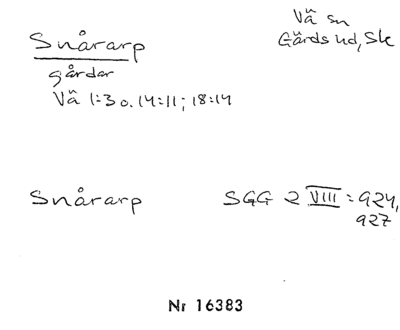 Snårarp
Vä sn
Gärds hd, Sk
gårdar
Vä 1:3 o. 14:11; 18:14
Snårarp
SGG 2 VIII = 924,
927
Nr 16383